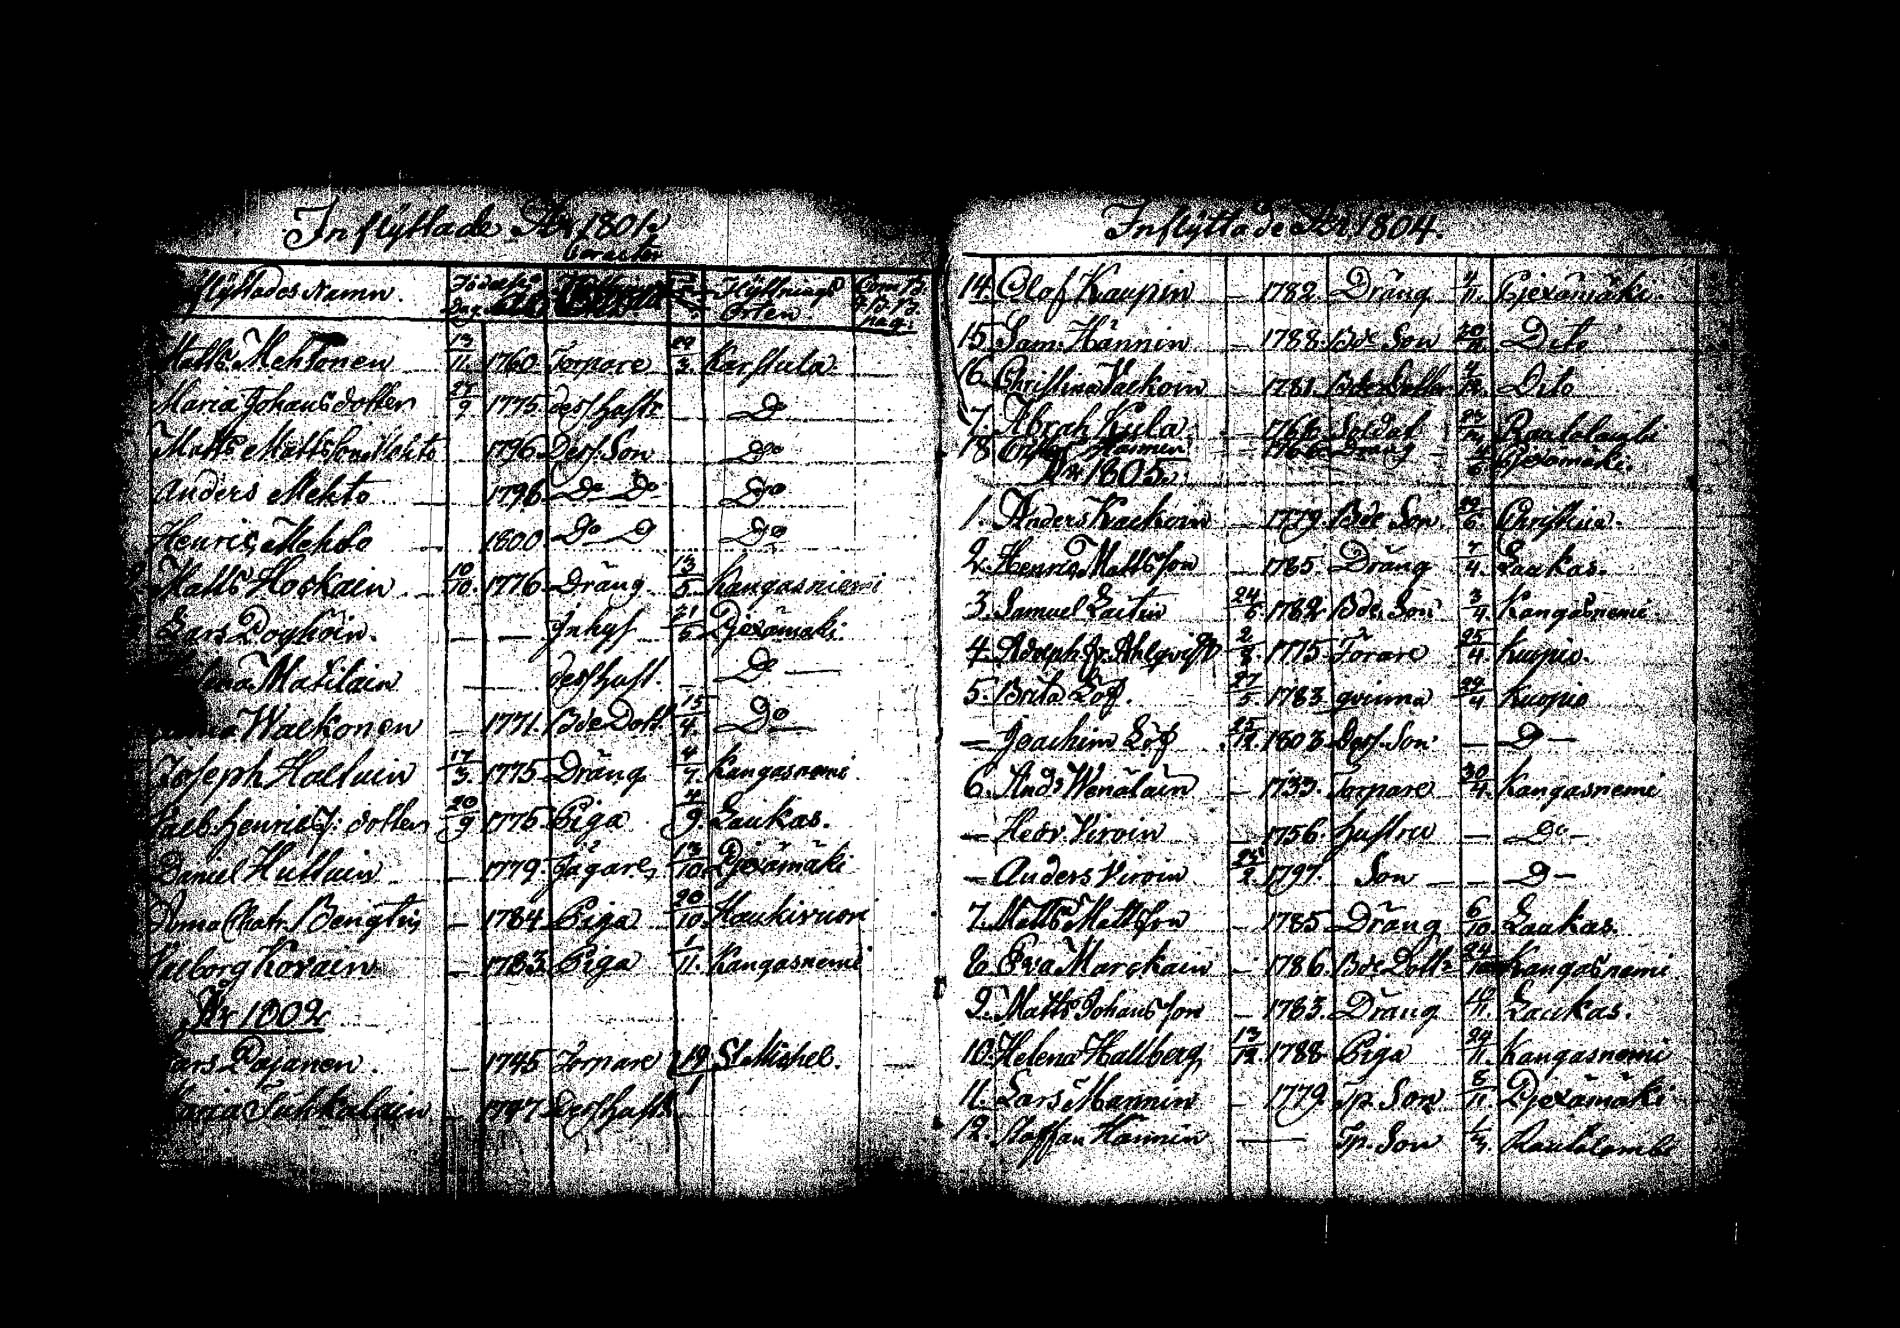 Inflyttade År 1801
Caracter
Namn. Flyttnings Orten
Matts Mehtonen 13/11. 1760 Torpare 22/3. Karstula
Maria Johansdotter 27/9 1775 dess hustr Do
Matts Mattsson Mehto 1796 Dess Son Do
Anders Mehto 1798 Do Do Do
Henric Mehto 1800 Do Do Do
Matts Hoskain 10/10. 1776 Dräng 13/5 Kangasniemi
Lars — — Inhys Pjexämäki.
Matilain — dess hust. — Do —
Waekonen — 1771. Bde Dott 15/4. Do —
Joseph Halluin 17/3. 1775 Dräng 4/7. Kangasnemi
Henrics dotter 20/9 1776 Piga 4/9. Laukas.
Daniel Huttuin — 1779. Jägare 13/10. Pjexämäki
Anna Chatr. Bengts — 1784 Piga 20/10. Haukivuori
Valborg Korain — 1783 Piga 1/11. Kangasnemi
År 1802
Lars Pajanen. — 1745 Torpare 19/1 St Michel.
Maria Tuhkalain — 1747 Dess hust
Inflyttade År 1804.
14. Olof Kaupin — 1782. Dräng 4/11. Pjexämäki.
15. Sam. Hännin — 1788. Bde Son Dito
16. Christina Vaekoin — 1781. Bde Dotter Dito
17. Abrah Kula — 1766 Soldat Rautalambi
18. Hännin — 1766. Dräng — Pjexämäki.
År 1805.
1. Anders Kaekoin — 1779. Bde Son Christina.
2. Henric Mattsson — 1785. Dräng 7/4. Laukas.
3. Samuel Laitin 24/6. 1782 Bde. Son 3/4. Kangasnemi
4. Adolph Fr. Ahlqvist 2/8. 1775 Förare 25/4. Kuopio.
5. Brita Löf. 27/5. 1783. qvinna 29/4 Kuopio
— Joachim Löf 25/12. 1803 Dess Son — D —
6. And:s Wänäläin — 1733. Torpare 30/4. Kangasnemi
— Hedv. Viroin — 1756. hustru — D —
— Anders Viroin 1797. Son — — D —
7. Matts Mattsson — 1785 Dräng 6/10. Laukas.
8. Eva Marckain — 1786. Bde Dottr Kangasnemi
9. Matts Johansson — 1783. Dräng Laukas.
10. Helena Hallberg 13/12. 1788 Piga 29/11. Kangasnemi
11. Lars Mannin — 1779. Tp. Son 8/11. Pjexämäki
12. Staffan Hännin — Tp. Son Rautalambi